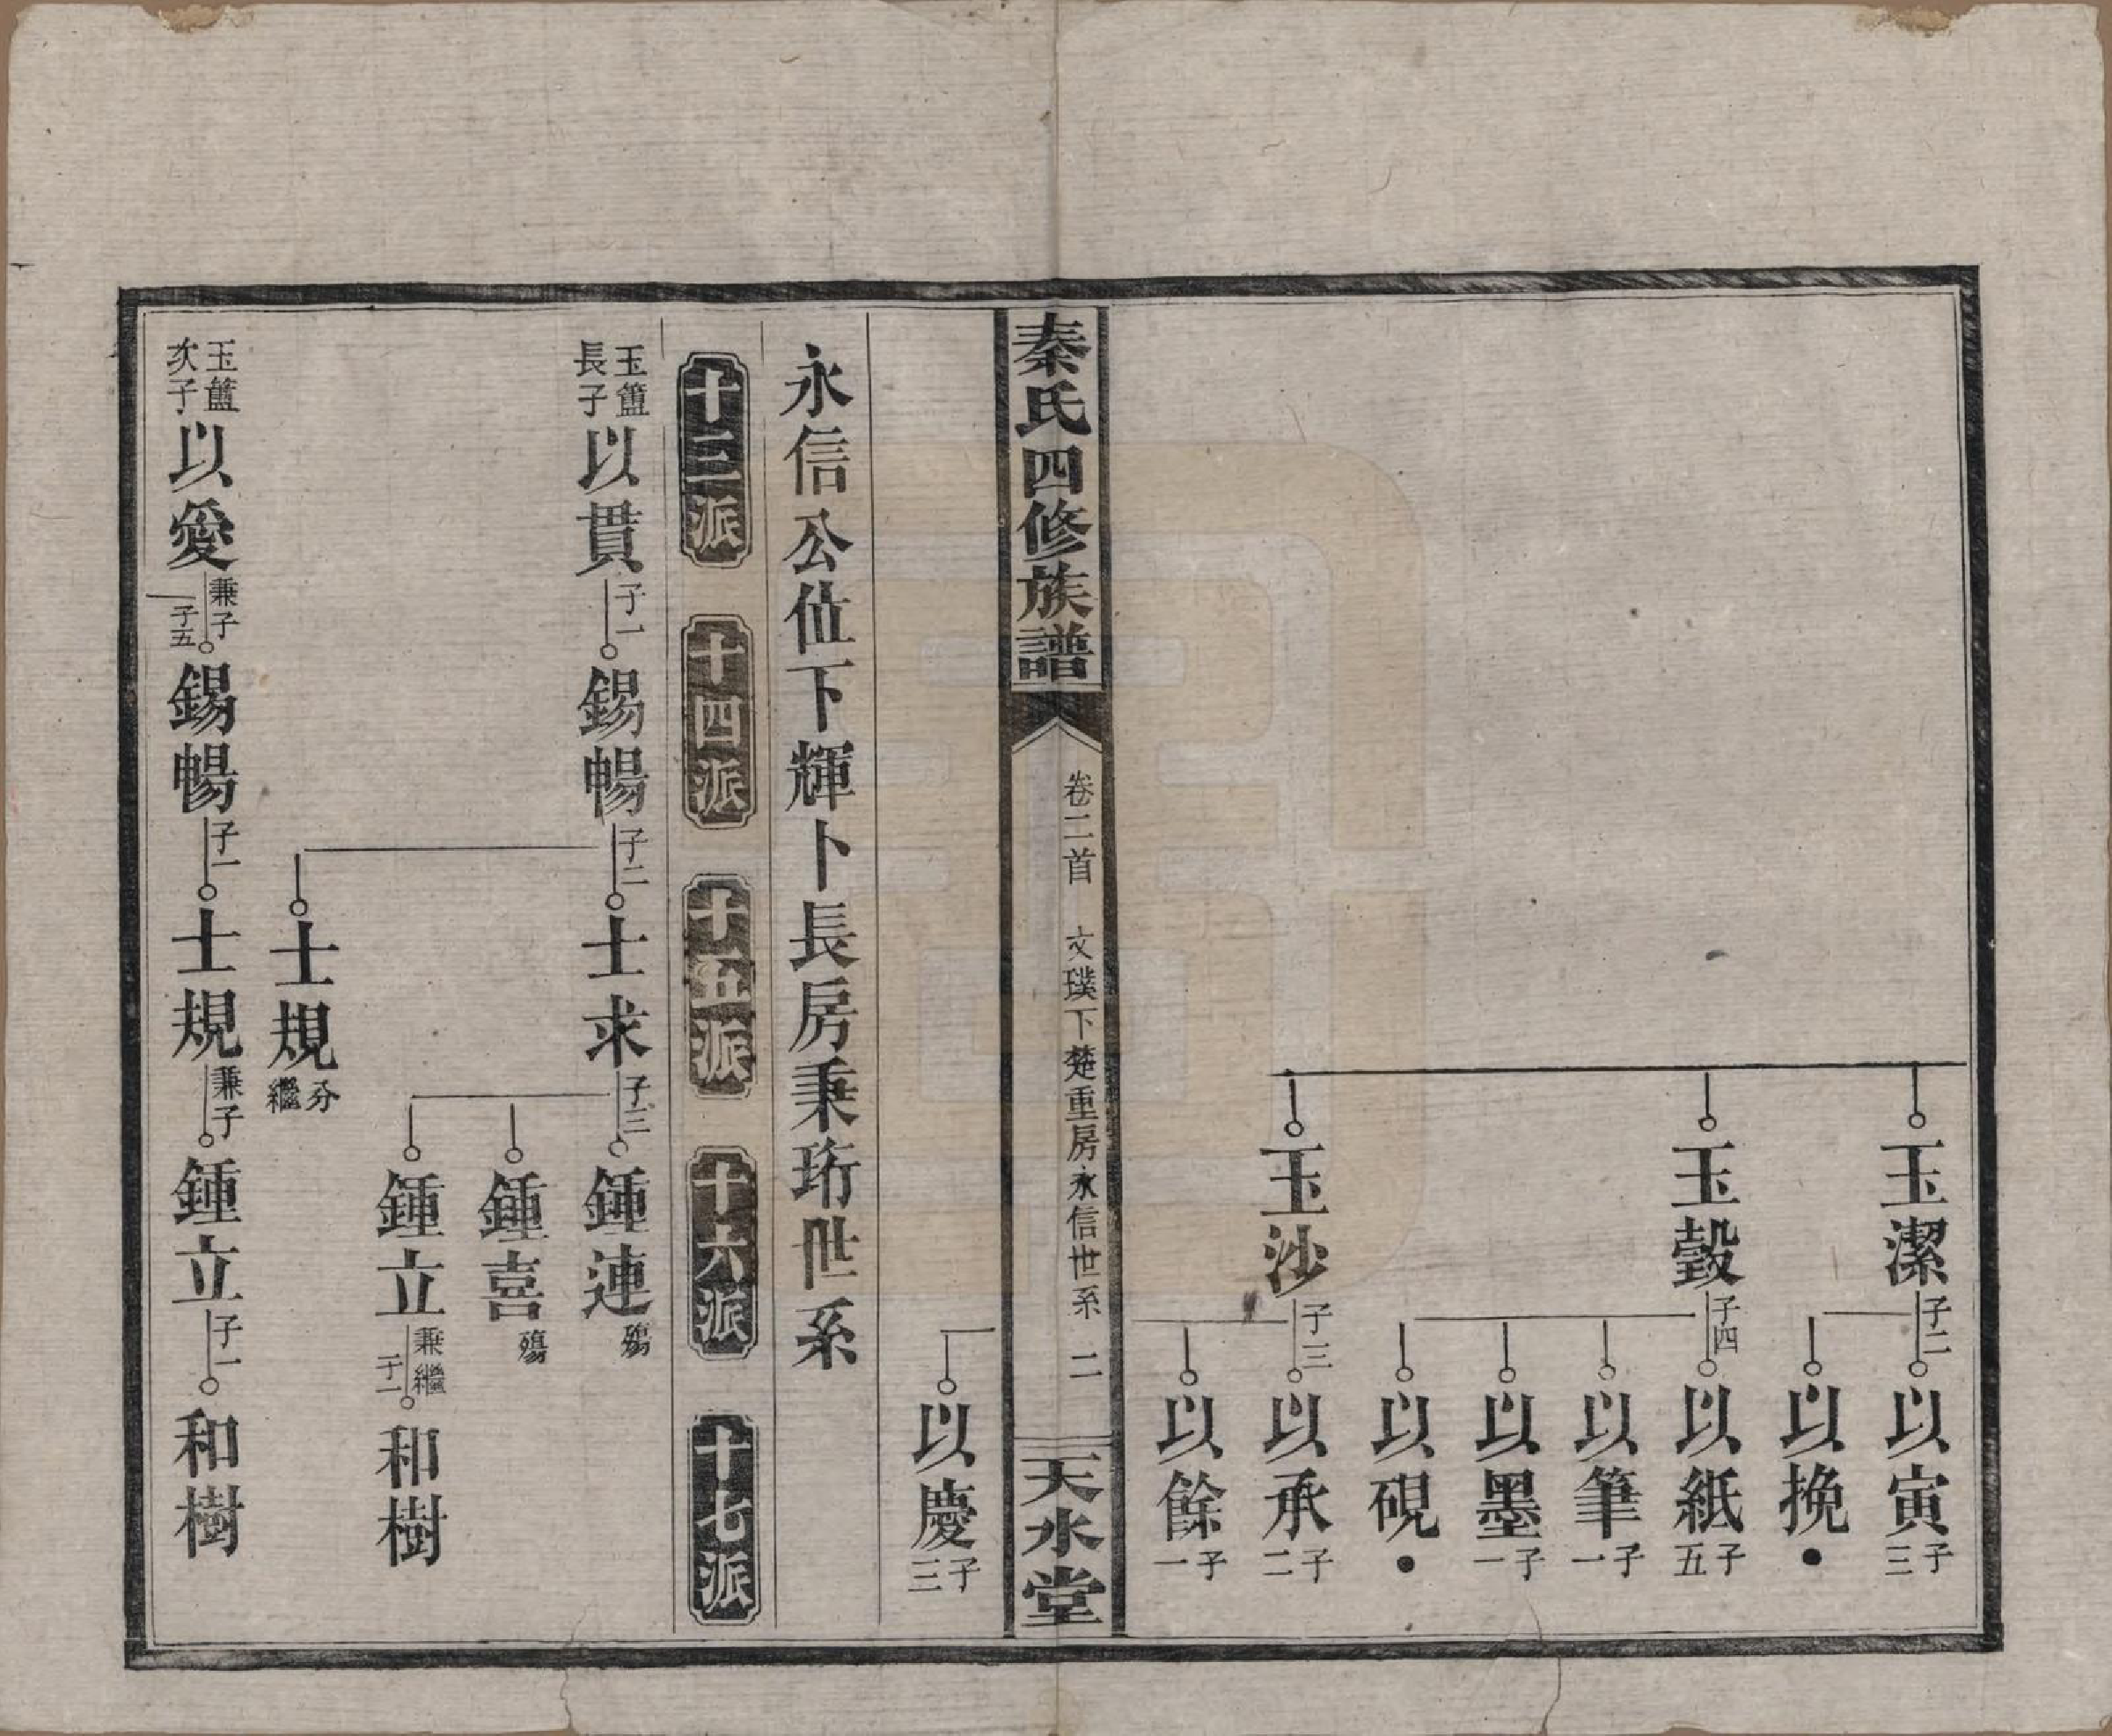 玉潔 子二 以寅 子三
以挽
玉瑴 子四 以紙 子五
以筆 子一
以墨 子一
以硯
玉沙 子三 以承 子二
以餘 子一
秦氏四修族譜 卷二首 文璞下楚重房永信世系 二 天水堂
以慶 子三
永信公位下輝卜長房秉珩世系
十三派 十四派 十五派 十六派 十七派
玉簠長子 以貫 子一 錫暢 子二 士求 子三 鍾連 殤
鍾喜 殤
鍾立 兼繼子一 和樹
士規 分繼
玉簠次子 以愛 兼子子五 錫暢 子一 士規 兼子 鍾立 子一 和樹